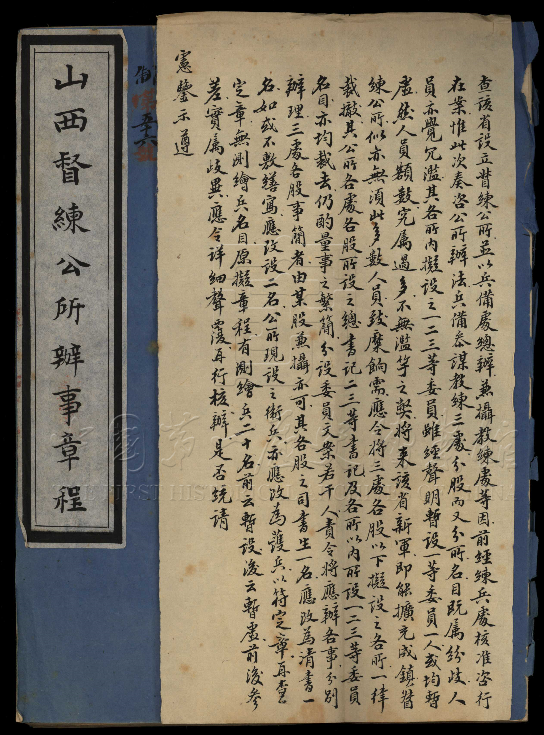 查該省設立督練公所並以兵備處總辦兼攝教練處等因前經練兵處核准咨行
在案惟此次奏咨公所辦法兵備叅謀教練三處分股而又分所名目既属紛歧人
員亦覺冗濫其各所内擬設之一二三等委員雖經聲明暫設一等委員一人或均暫
虛然人員額數究属過多不無濫竽之獘將来該省新軍即能擴充成鎮督
練公所似亦無須此多數人員致糜餉需應令將三處各股以下擬設之各所一律
裁撤其公所各處各股所設之總書記二三等書記及各所以内所設一二三等委員
名目亦均裁去仍酌量事之繁簡分設委員文案若干人責令將應辦各事分別
辦理三處各股事簡者由某股兼攝亦可其各股之司書生一名應改為清書一
名如或不敷繕寫應改設二名公所現設之衛兵亦應改為護兵以符定章再查
定章無測繪兵名目原擬章程有測繪兵二十名前云暫設後云暫虛前後參
差實属歧異應令詳細聲覆再行核辦是否統請
憲鑒示遵
山西督練公所辦事章程
五十六
中國第一歷史檔案館
THE FIRST HISTORICAL